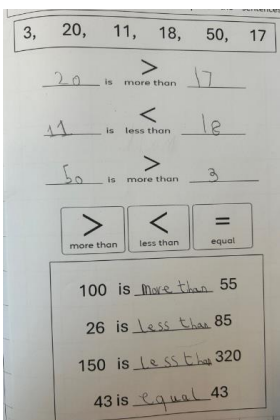 sentences
3, 20, 11, 18, 50, 17
>
20 is more than 17
<
11 is less than 18
>
50 is more than 3
> < =
more than less than equal
100 is more than 55
26 is less than 85
150 is less than 320
43 is equal 43